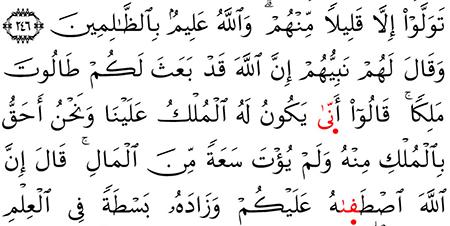 تَوَلَّوْا۟ إِلَّا قَلِيلًا مِّنْهُمْ ۗ وَٱللَّهُ عَلِيمٌۢ بِٱلظَّـٰلِمِينَ ٢٤٦
وَقَالَ لَهُمْ نَبِيُّهُمْ إِنَّ ٱللَّهَ قَدْ بَعَثَ لَكُمْ طَالُوتَ
مَلِكًا ۚ قَالُوٓا۟ أَنَّىٰ يَكُونُ لَهُ ٱلْمُلْكُ عَلَيْنَا وَنَحْنُ أَحَقُّ
بِٱلْمُلْكِ مِنْهُ وَلَمْ يُؤْتَ سَعَةً مِّنَ ٱلْمَالِ ۚ قَالَ إِنَّ
ٱللَّهَ ٱصْطَفَىٰهُ عَلَيْكُمْ وَزَادَهُۥ بَسْطَةً فِى ٱلْعِلْمِ